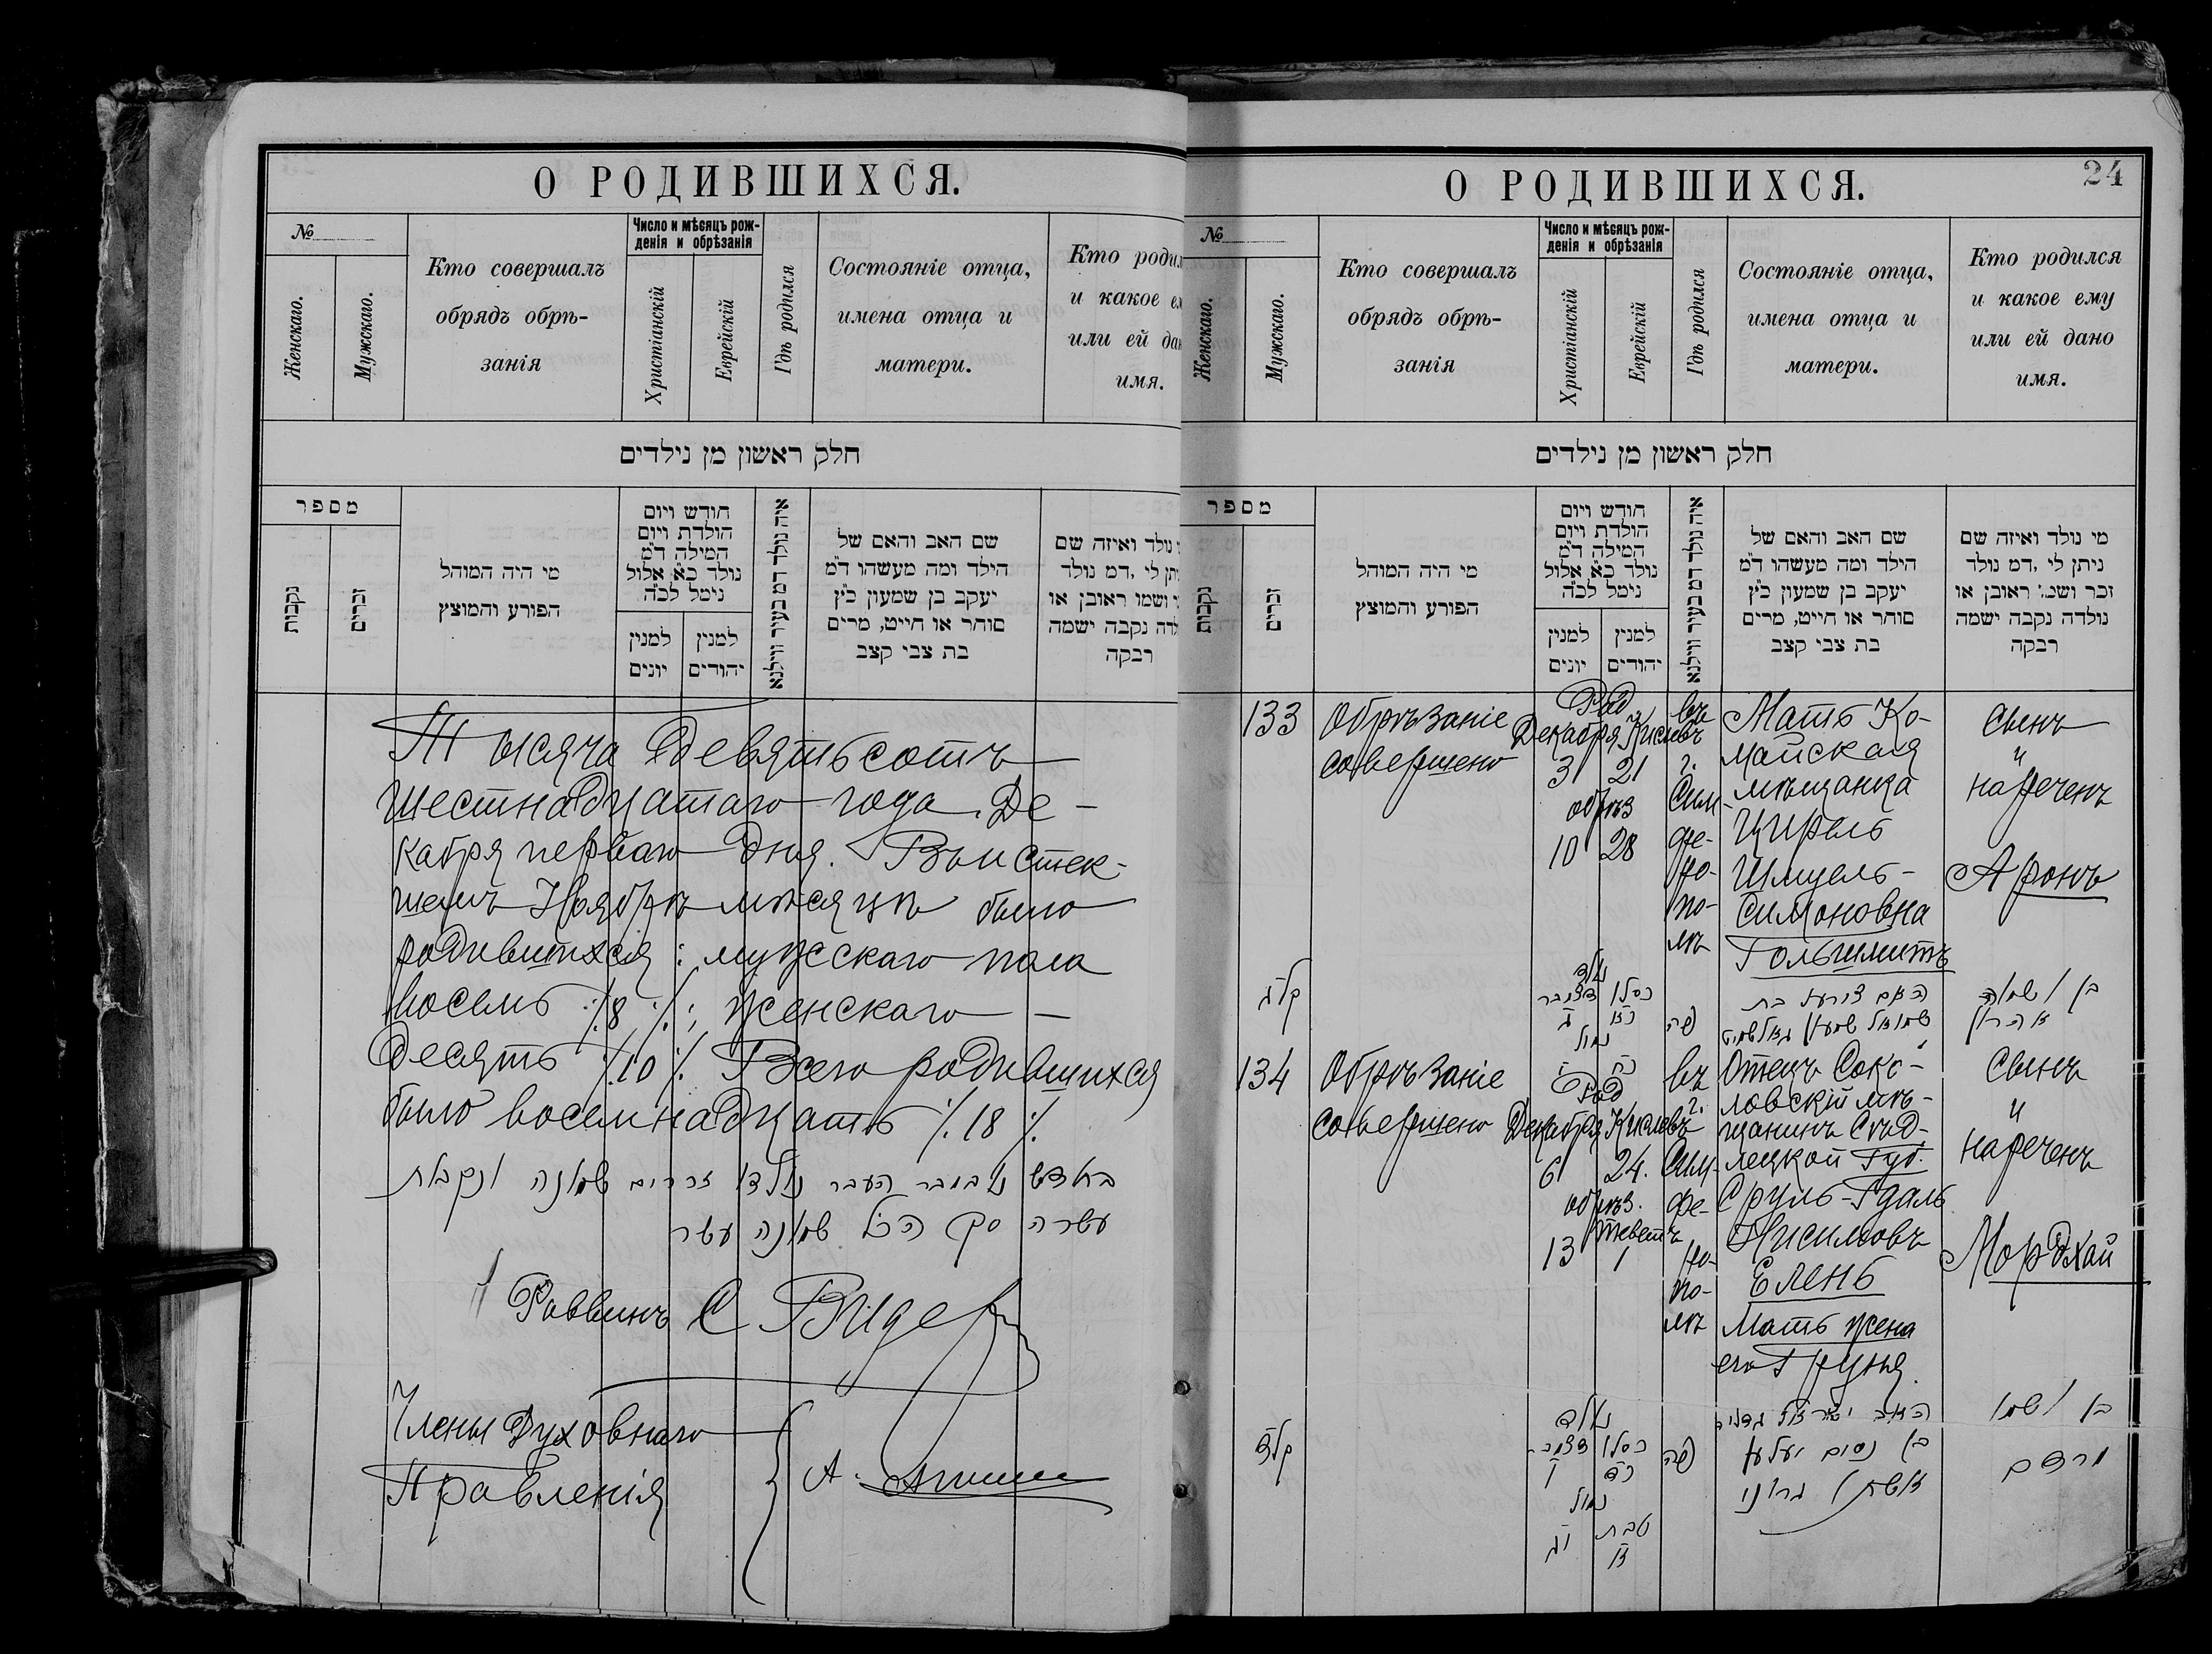 О РОДИВШИХСЯ.
№
Женскаго.
Мужскаго.
Кто совершалъ
обрядъ обрѣ-
занія
Число и мѣсяцъ рож-
денія и обрѣзанія
Христіанскій
Еврейскій
Гдѣ родился
Состояніе отца,
имена отца и
матери.
Кто роди
и какое е
или ей да
имя.
חלק ראשון מן נילדים
מספר
נקבות
זכרים
מי היה המוהל
הפורע והמוצץ
חודש ויום
הולדת ויום
המילה ד״מ
נולד כ״א אלול
נימל לכ״ה
למנין
יונים
למנין
יהודים
איה נולד דמ בעיר ווילנא
שם האב והאם של
הילד ומה מעשהו ד״מ
יעקב בן שמעון כ״ץ
סוחר או חייט, מרים
בת צבי קצב
נולד ואיזה שם
תן לי, דמ נולד
ושמו ראובן או
לדה נקבה ישמה
רבקה
Тысяча девятьсотъ
шестнадцатаго года. Де-
кабря перваго дня. Въ истек-
шемъ Ноябрѣ мѣсяцѣ было
родившихся: мужскаго пола
восемь ·/. 8 ·/.; женскаго —
десять ·/. 10 ·/. Всего родившихся
было восемнадцать ·/. 18 ·/.
בחדש נאבמבר העבר נולדו זכרים שמונה ונקבות
עשרה סך הכל שמונה עשר
Раввинъ С Видер
Члены Духовнаго
Правленія
А.
О РОДИВШИХСЯ.
24
№
Женскаго.
Мужскаго.
Кто совершалъ
обрядъ обрѣ-
занія
Число и мѣсяцъ рож-
денія и обрѣзанія
Христіанскій
Еврейскій
Гдѣ родился
Состояніе отца,
имена отца и
матери.
Кто родился
и какое ему
или ей дано
имя.
חלק ראשון מן נילדים
מספר
נקבות
זכרים
מי היה המוהל
הפורע והמוצץ
חודש ויום
הולדת ויום
המילה ד״מ
נולד כ״א אלול
נימל לכ״ה
למנין
יונים
למנין
יהודים
איה נולד דמ בעיר ווילנא
שם האב והאם של
הילד ומה מעשהו ד״מ
יעקב בן שמעון כ״ץ
סוחר או חייט, מרים
בת צבי קצב
מי נולד ואיזה שם
ניתן לי, דמ נולד
זכר ושמ׳ ראובן או
נולדה נקבה ישמה
רבקה
133
Обрѣзаніе
совершено
Род.
Декабря Кислевъ
3 21
обрѣз
10 28
въ
г.
Сим-
фе-
ро-
по-
лѣ
Мать Ко-
майская
мѣщанка
Цирель
Шмуель-
Симоновна
Гольшмитъ
сынъ
и
нареченъ
Аронъ
קלג
נולד
כסלו דצמבר
כא ג
נמול
כח י
פה
האם צירעל בת
שמואל שמעון גאלשמיט
בן ושמו
אהרון
134
Обрѣзаніе
совершено
Род
Декабря Кислевъ
6 24.
обрѣз.
Теветъ
13 1
въ
г.
Сим-
фе-
ро-
по-
лѣ
Отецъ Соко-
ловскій мѣ-
щанинъ Сѣд-
лецкой Губ.
Сруль-Гдаль
Нисимовъ
Елень
Мать жена
его Груня.
сынъ
и
нареченъ
Мордхай
קלד
נולד
כסלו דצמבר
כד ו
נמול
טבת
א יג
פה
האב ישראל גדליה
בן נסים יעלען
אשתו גרוני
בן ושמו
מרדכי